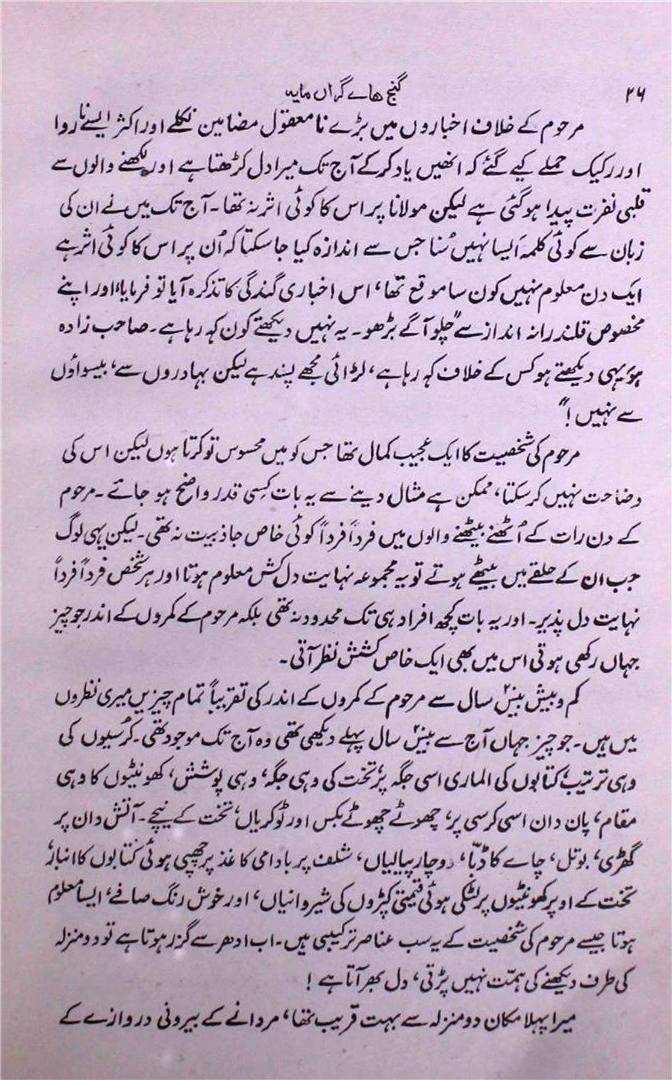 ۲۶
گنج ہائے گراں مایہ
مرحوم کے خلاف اخباروں میں بڑے نامعقول مضامین نکلے اور اکثر ایسے ناروا
اور رکیک حملے کیے گئے کہ انھیں یاد کر کے آج تک میرا دل کڑھتا ہے اور لکھنے والوں سے
قلبی نفرت پیدا ہو گئی ہے لیکن مولانا پر اس کا کوئی اثر نہ تھا۔ آج تک میں نے ان کی
زبان سے کوئی کلمہ ایسا نہیں سُنا جس سے اندازہ کیا جا سکتا کہ اُن پر اس کا کوئی اثر ہے
ایک دن معلوم نہیں کون سا موقع تھا، اس اخباری گندگی کا تذکرہ آیا تو فرمایا، اور اپنے
مخصوص قلندرانہ انداز سے "چلو آگے بڑھو۔ یہ نہیں دیکھتے کون کہہ رہا ہے۔ صاحب زادہ
ہو یہی دیکھتے ہو کس کے خلاف کہہ رہا ہے، لڑائی مجھے پسند ہے لیکن بہادروں سے، بیسواؤں
سے نہیں!"
مرحوم کی شخصیت کا ایک عجیب کمال تھا جس کو میں محسوس تو کرتا ہوں لیکن اس کی
وضاحت نہیں کر سکتا، ممکن ہے مثال دینے سے یہ بات کسی قدر واضح ہو جائے۔ مرحوم
کے دن رات کے اُٹھنے بیٹھنے والوں میں فرداً فرداً کوئی خاص جاذبیت نہ تھی۔ لیکن یہی لوگ
جب ان کے حلقے میں بیٹھے ہوتے تو یہ مجموعہ نہایت دل کش معلوم ہوتا اور ہر شخص فرداً فرداً
نہایت دل پذیر۔ اور یہ بات کچھ افراد ہی تک محدود نہ تھی بلکہ مرحوم کے کمروں کے اندر جو چیز
جہاں رکھی ہوتی اس میں بھی ایک خاص کشش نظر آتی۔
کم و بیش بیس۲۰ سال سے مرحوم کے کمروں کے اندر کی تقریباً تمام چیزیں میری نظروں
میں ہیں۔ جو چیز جہاں آج سے بیس۲۰ سال پہلے دیکھی تھی وہ آج تک موجود تھی۔ کرسیوں کی
وہی ترتیب، کتابوں کی الماری اسی جگہ پر، تخت کی وہی جگہ، وہی پوشش، کھونٹیوں کا وہی
مقام، پان دان اسی کرسی پر، چھوٹے چھوٹے بکس اور ٹوکریاں، تخت کے نیچے۔ آتش دان پر
گھڑی، بوتل، چاے کا ڈبّا، دو چار پیالیاں، شلف پر بادامی کاغذ پر چھپی ہوئی کتابوں کا انبار،
تخت کے اوپر کھونٹیوں پر لٹکی ہوئی قیمتی کپڑوں کی شیروانیاں، اور خوش رنگ صافے، ایسا معلوم
ہوتا جیسے مرحوم کی شخصیت کے یہ سب عناصر ترکیبی ہیں۔ اب ادھر سے گزر ہوتا ہے تو دو منزلہ
کی طرف دیکھنے کی ہمّت نہیں پڑتی، دل بھر آتا ہے!
میرا پہلا مکان دو منزلہ سے بہت قریب تھا، مردانے کے بیرونی دروازے کے